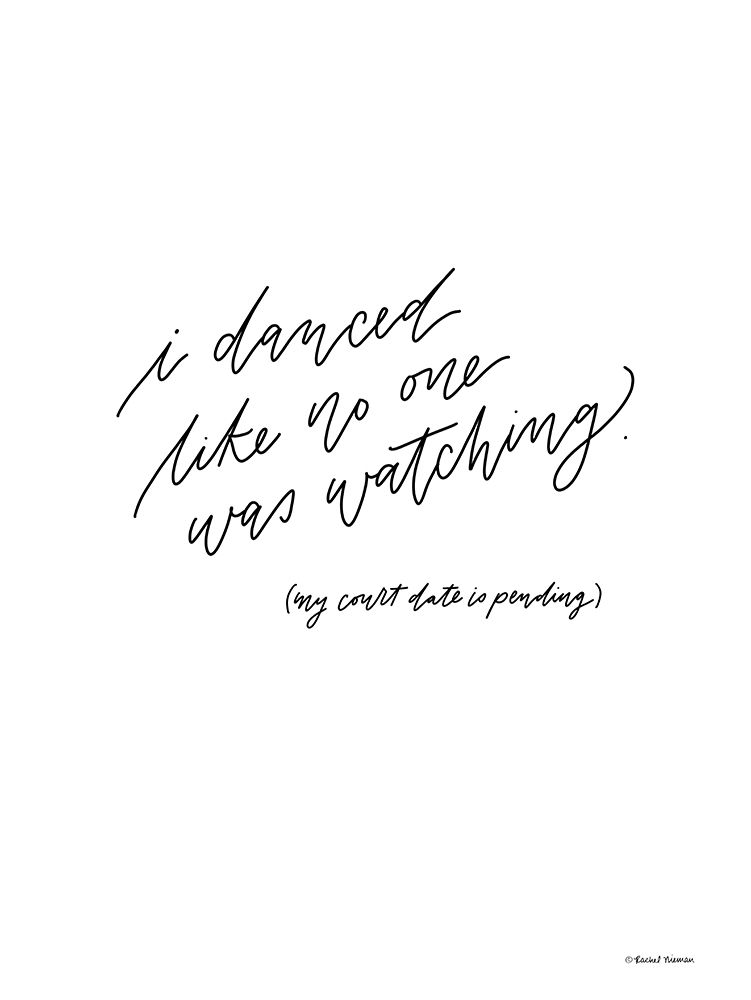 i danced
like no one
was watching.
(my court date is pending)
© Rachel Nieman